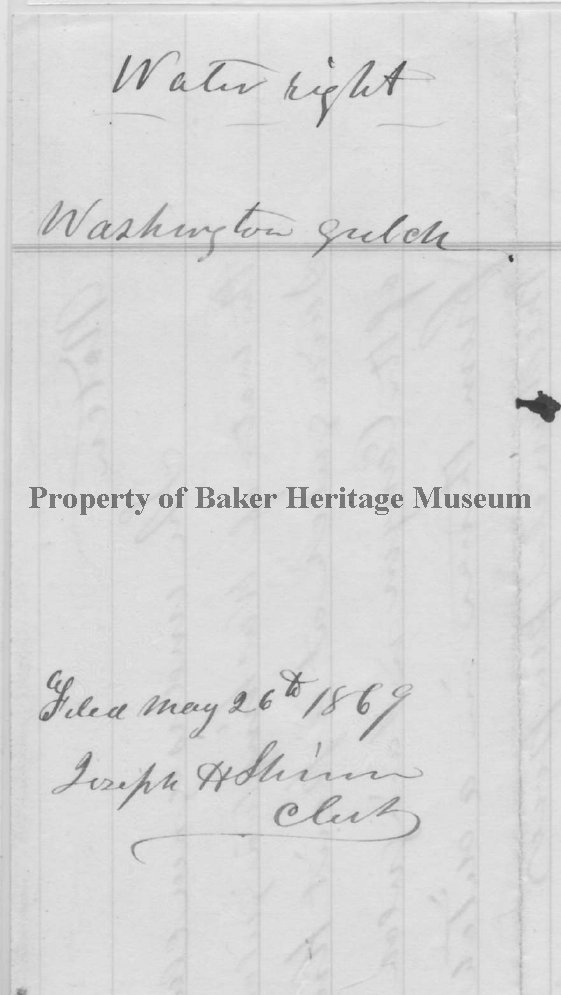 Water right
Washington gulch
Property of Baker Heritage Museum
Filed May 26th 1869
Joseph H Shinn
Clerk